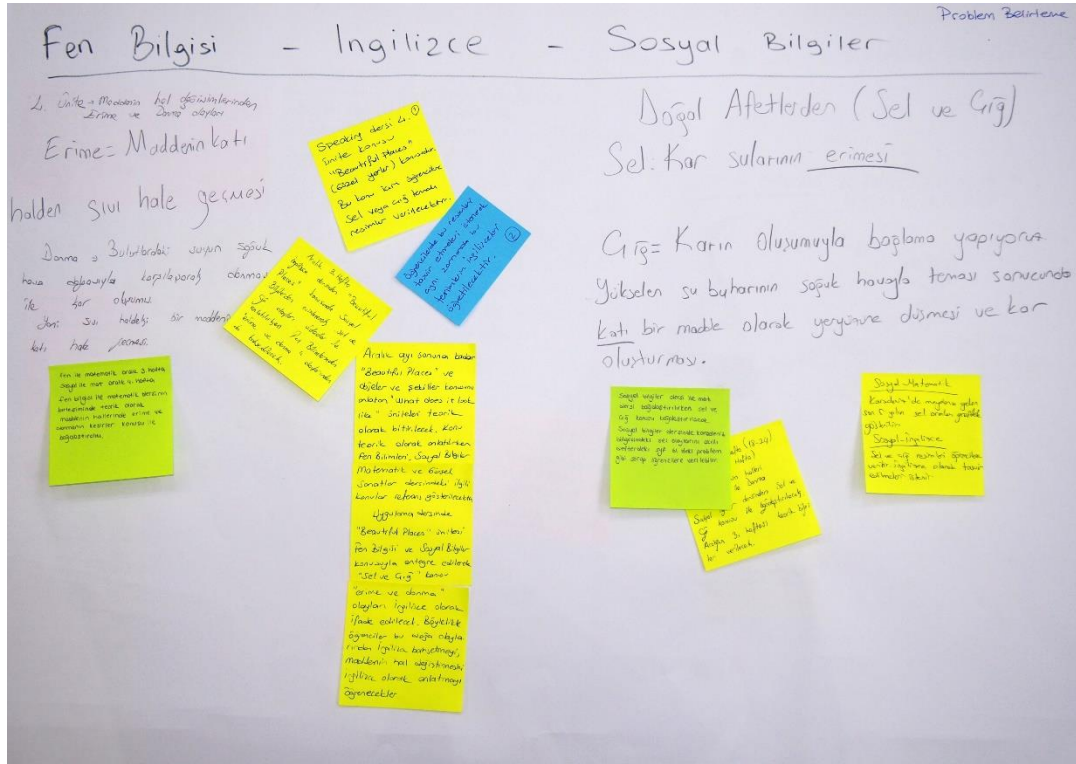 Problem Belirleme
Fen Bilgisi - Ingilizce - Sosyal Bilgiler
2. Ünite → Maddenin hal değişimlerinden
Erime ve Donma olayları
Erime = Maddenin katı
halden sıvı hale geçmesi
Donma → Bulutlardaki suyun soğuk
hava ile karşılaşarak donması
ile kar oluşumu.
Yani sıvı haldeki bir maddenin
katı hale geçmesi.
Fen ile matematik aralık 3. hafta
Fen bilgisi ile matematik dersinin
birleşiminde teorik olarak
maddenin hallerinde erime ve
donmanın kesirler konusu ile
bağdaştırılması.
Speaking dersi 4. ①
ünite konusu
"Beautiful Places"
(Güzel yerler) konusudur.
Bu konu için öğrencilere
Sel veya çığ temalı
resimler verilecektir.
Öğrencilerde bu resimleri
tasvir etmeleri istenerek
aynı zamanda bu
terimlerin ingilizceleri ②
öğretilecektir.
Aralık 3. Hafta
ingilizce dersinden "Beautiful
Places" konusunda Sosyal
Bilgilerden sel ve
çığ olayları
Fen Bilimlerinden
erime ve donma olaylarından
da bahsedilecek.
Aralık ayı sonuna kadar
"Beautiful Places" ve
objeler ve şekiller konusunu
anlatan "What does it look
like" üniteleri teorik
olarak bitirilecek. Konu
teorik olarak anlatılırken
Fen Bilimleri, Sosyal Bilgiler
Matematik ve Görsel
Sanatlar dersindeki ilgili
konular referans gösterilecektir
Uygulama dersinde
"Beautiful Places" ünitesi
Fen Bilgisi ve Sosyal Bilgiler
konusuyla entegre edilerek
"Sel ve Çığ" konusu
"erime ve donma"
olayları İngilizce olarak
ifade edilecek. Böylelikle
öğrenciler bu doğa olayla
rından İngilizce bahsetmeyi,
maddenin hal değiştirmesini
ingilizce olarak anlatmayı
öğrenecekler
Doğal Afetlerden (Sel ve Çığ)
Sel: Kar sularının erimesi
Çığ = Karın Oluşumuyla bağlama yapıyoruz.
Yükselen su buharının soğuk havayla teması sonucunda
katı bir madde olarak yeryüzüne düşmesi ve kar
oluşturması.
Sosyal bilgiler dersi ile mat.
dersi bağdaştırılırken sel ve
çığ konusu bağdaştırılacak.
Sosyal bilgiler dersinde Karadeniz
bölgesindeki sel olaylarını
öğrencilere verilebilir.
(18-24)
hafta)
halleri
donma
Sosyal dersinden Sel ve
Çığ konusu ile bağdaştırılacak
Aralığın 3. haftası teorik bilgi
ler verilecek.
Sosyal-Matematik
Karadeniz'de meydana gelen
son 5 yılın sel oranları grafikle
gösterilsin
Sosyal-ingilizce
Sel ve çığ resimleri öğrencilere
verilir ingilizce olarak tasvir
edilmeler istenir